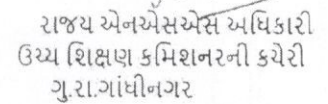 રાજય એનએસએસ અધિકારી
ઉચ્ચ શિક્ષણ કમિશનરની કચેરી
ગુ.રા.ગાંધીનગર